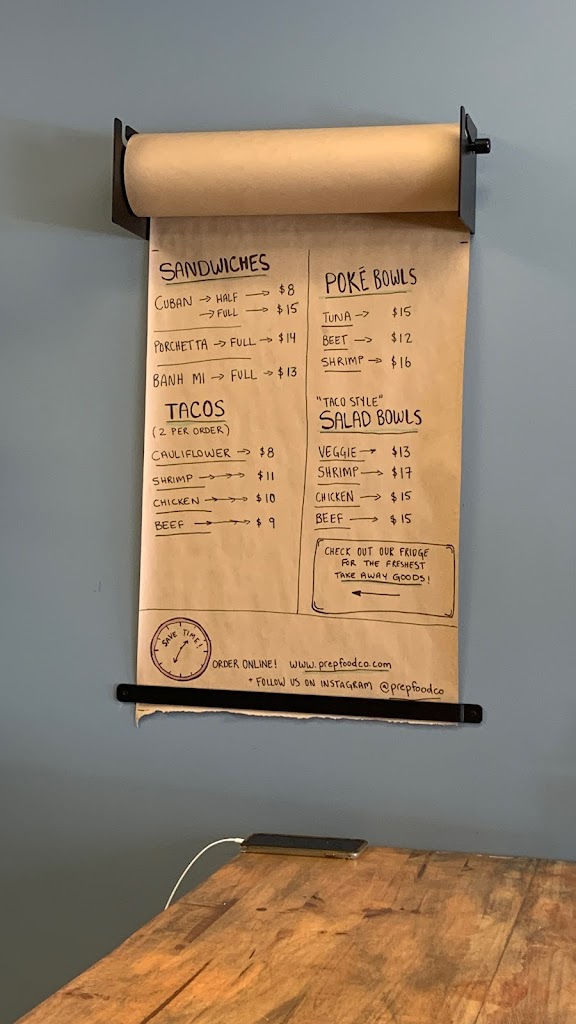 SANDWICHES
CUBAN → HALF → $8
→ FULL → $15
PORCHETTA → FULL → $14
BANH MI → FULL → $13
TACOS
(2 PER ORDER)
CAULIFLOWER → $8
SHRIMP →→→ $11
CHICKEN →→→ $10
BEEF →→→ $9
POKÉ BOWLS
TUNA → $15
BEET → $12
SHRIMP → $16
"TACO STYLE"
SALAD BOWLS
VEGGIE → $13
SHRIMP → $17
CHICKEN → $15
BEEF → $15
CHECK OUT OUR FRIDGE
FOR THE FRESHEST
TAKE AWAY GOODS!
←
SAVE TIME!
ORDER ONLINE! www.prepfoodco.com
* FOLLOW US ON INSTAGRAM @prepfoodco